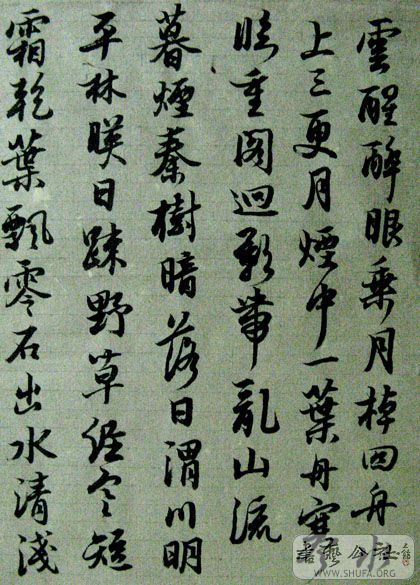 雲醒醉眼乗月棹回舟
上三更月煙中一葉舟
臨重閣迥影帶亂山流
暮煙秦樹暗落日渭川明
平林暎日疎野草經寒短
霜乾葉飄零石出水清淺
書藝公社
WWW.SHUFA.ORG